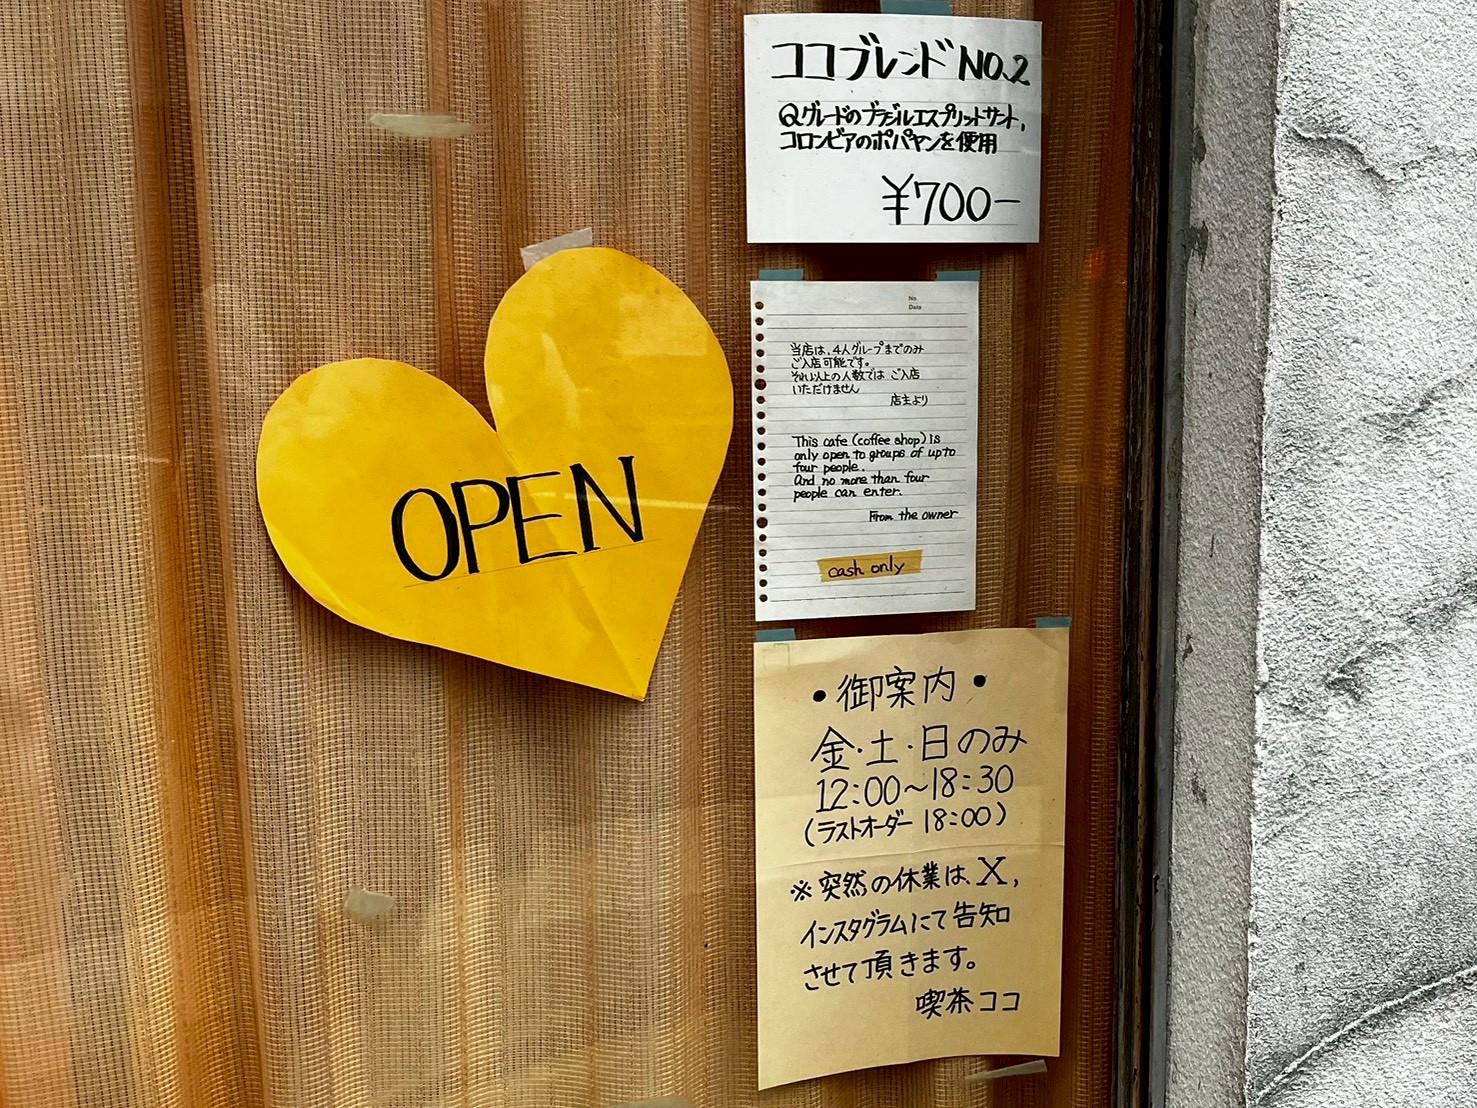 OPEN
ココブレンド NO.2
Qグレードのブラジルエスプリットサント,
コロンビアのポパヤンを使用
¥700-
No.
Date
当店は、4人グループまでのみ
ご入店可能です。
それ以上の人数では ご入店
いただけません
店主より
This cafe (coffee shop) is
only open to groups of up to
four people.
And no more than four
people can enter.
From the owner
cash only
・御案内・
金・土・日のみ
12:00〜18:30
(ラストオーダー 18:00)
※突然の休業は、X,
インスタグラムにて告知
させて頂きます。
喫茶ココ